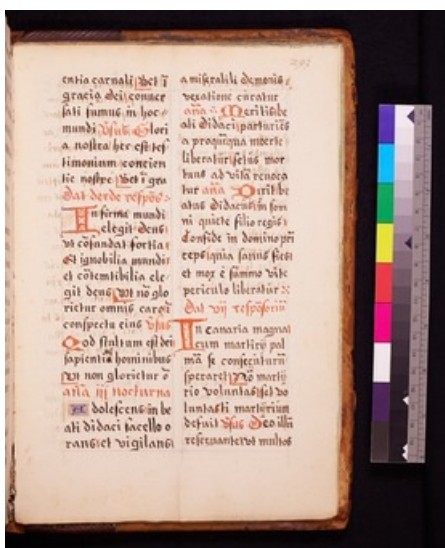 entia carnali Set ī
gracia dei conuer
sati sumus in hoc
mundi vsus Glori
a nostra hec est tes
timonium concien
tie nostre Set ī gra
Dat derde respōs
Infirma mundi
elegit deus
vt cōfundat fortia
Et ignobilia mundi
et cōtemtibilia ele
git deus Vt nō glo
rietur omnis caro ī
conspectu eius vsus
Qod stultum est dei
sapientiā hominibus
Vt non glorietur ō
aña iii nocturna
Adolescens in be
ati didaci sacello o
rans et vigilans
a miserabili demonis
vexatione curatur
aña Meritis be
ati Didaci parturiēs
a propinqua morte
liberatur fetus mor
tuus ad vitā reuoca
tur aña Orit be
atus Didacus in som
ni quiete filio regis
Confide in domino pri
ceps iquia sanus fies
et mox e summo vite
periculo liberatur
Dat vij respōsoriū
In canaria magna
cum martirij pal
mā se consecuturū
speraret Nō marty
rio voluntas set vo
luntati martyrium
defuit vsus Deo illū
reseruante vt multos